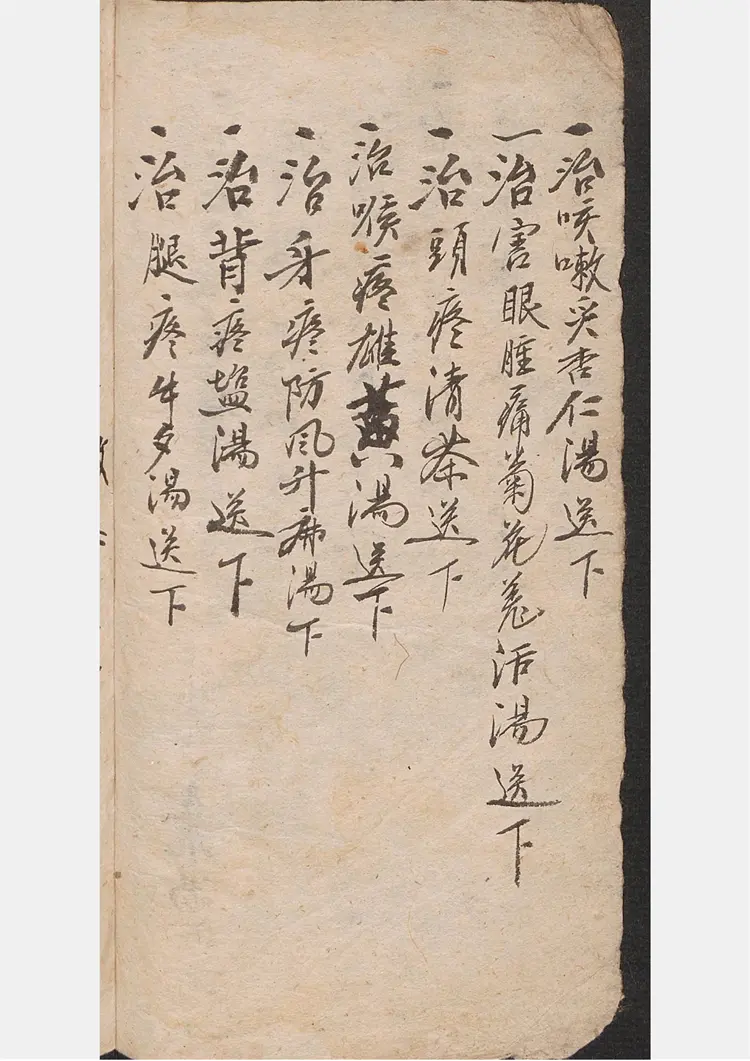 一治咳嗽炙杏仁湯送下
一治害眼腫痛菊花羌活湯送下
一治頭疼清茶送下
一治喉疼雄黃湯送下
一治身疼防风升麻湯下
一治背疼塩湯送下
一治腿疼牛夕湯送下